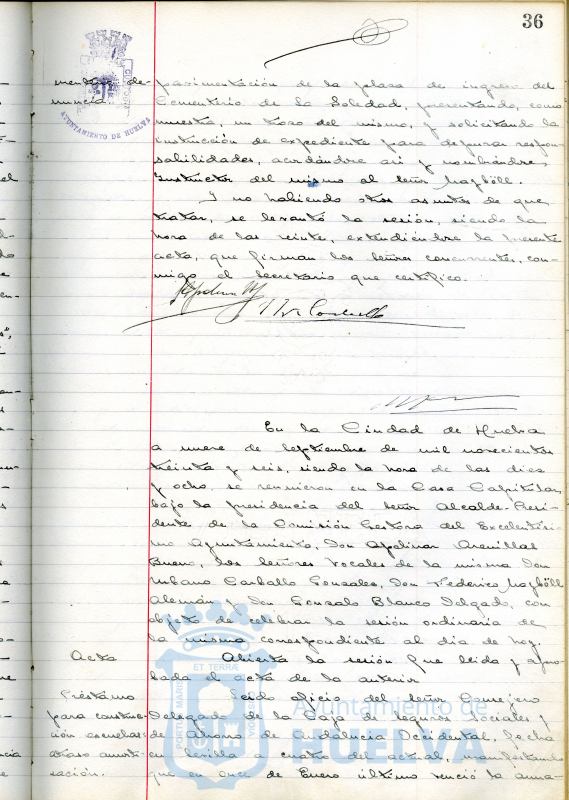 36
AYUNTAMIENTO DE HUELVA
mentario de-
nuncia.
pavimentación de la plaza de ingreso del
Cementerio de la Soledad, presentando, como
muestra, un trozo del mismo, y solicitando la
instrucción de expediente para depurar respon-
sabilidades, acordándose así y nombrándose
Instructor del mismo al señor Mogböll.
Y no habiendo otros asuntos de que
tratar, se levantó la sesión, siendo la
hora de las veinte, extendiéndose la presente
acta, que firman los señores concurrentes, con-
migo el Secretario que certifico.
En la Ciudad de Huelva
a nueve de Septiembre de mil novecientos
treinta y seis, siendo la hora de las diez
y ocho, se reunieron en la Casa Capitular,
bajo la presidencia del señor Alcalde-Presi-
dente de la Comisión Gestora del Excelentísi-
mo Ayuntamiento, Don Apolinar Arenillas
Bueno, los señores Vocales de la misma Don
Urbano Carballo Gonzales, Don Federico Mogböll
Alemán y Don Gonzalo Blanco Delgado, con
objeto de celebrar la sesión ordinaria de
la misma correspondiente al día de hoy.
Acta
Abierta la sesión fue leida y apro-
bada el acta de la anterior
Préstamo
para construc-
ción escuelas:
atraso amorti-
sación.
Leido oficio del señor Consejero
Delegado de la Caja de Seguros Sociales y
de Ahorros de Andalucia Occidental, fecha
en Sevilla a cuatro del actual, manifestando
que en once de Enero último venció la anua-
Ayuntamiento de
HUELVA
PORTUS MARIS
ET TERRA